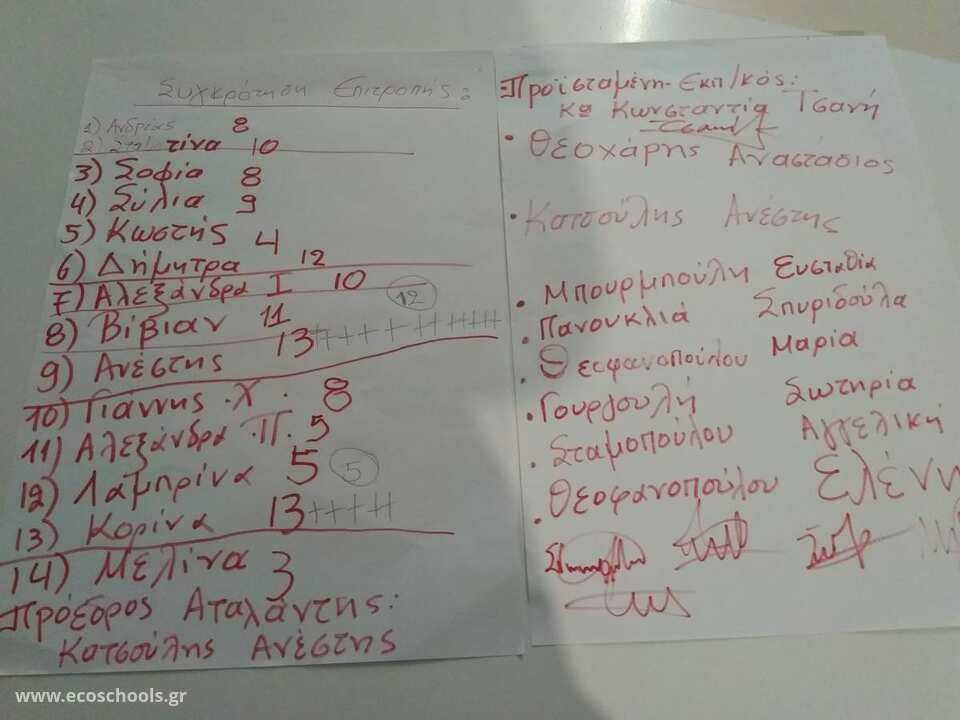 Συγκρότηση Επιτροπής:
1) Ανδρέας 8
2) τίνα 10
3) Σοφία 8
4) Σύλια 9
5) Κωστής 4
6) Δήμητρα 12
7) Αλεξάνδρα Ι 10
8) Βίβιαν 11 12
9) Ανέστης 13 ++++++++++++
10) Γιάννης .Χ. 8
11) Αλεξάνδρα .Π. 5
12) Λαμπρίνα 5 5
13) Κορίνα 13 +++++
14) Μελίνα 3
Πρόεδρος Αταλάντης:
Κατσούλης Ανέστης
Προϊσταμένη-Εκπ/κός:
Κα Κωνσταντία Τσανή
• Θεοχάρης Αναστάσιος
• Κατσούλης Ανέστης
• Μπουρμπούλη Ευσταθία
• Πανουκλιά Σπυριδούλα
• Θεοφανοπούλου Μαρία
• Γουργουλή Σωτηρία
• Σταμοπούλου Αγγελική
• Θεοφανοπούλου Ελένη
www.ecoschools.gr